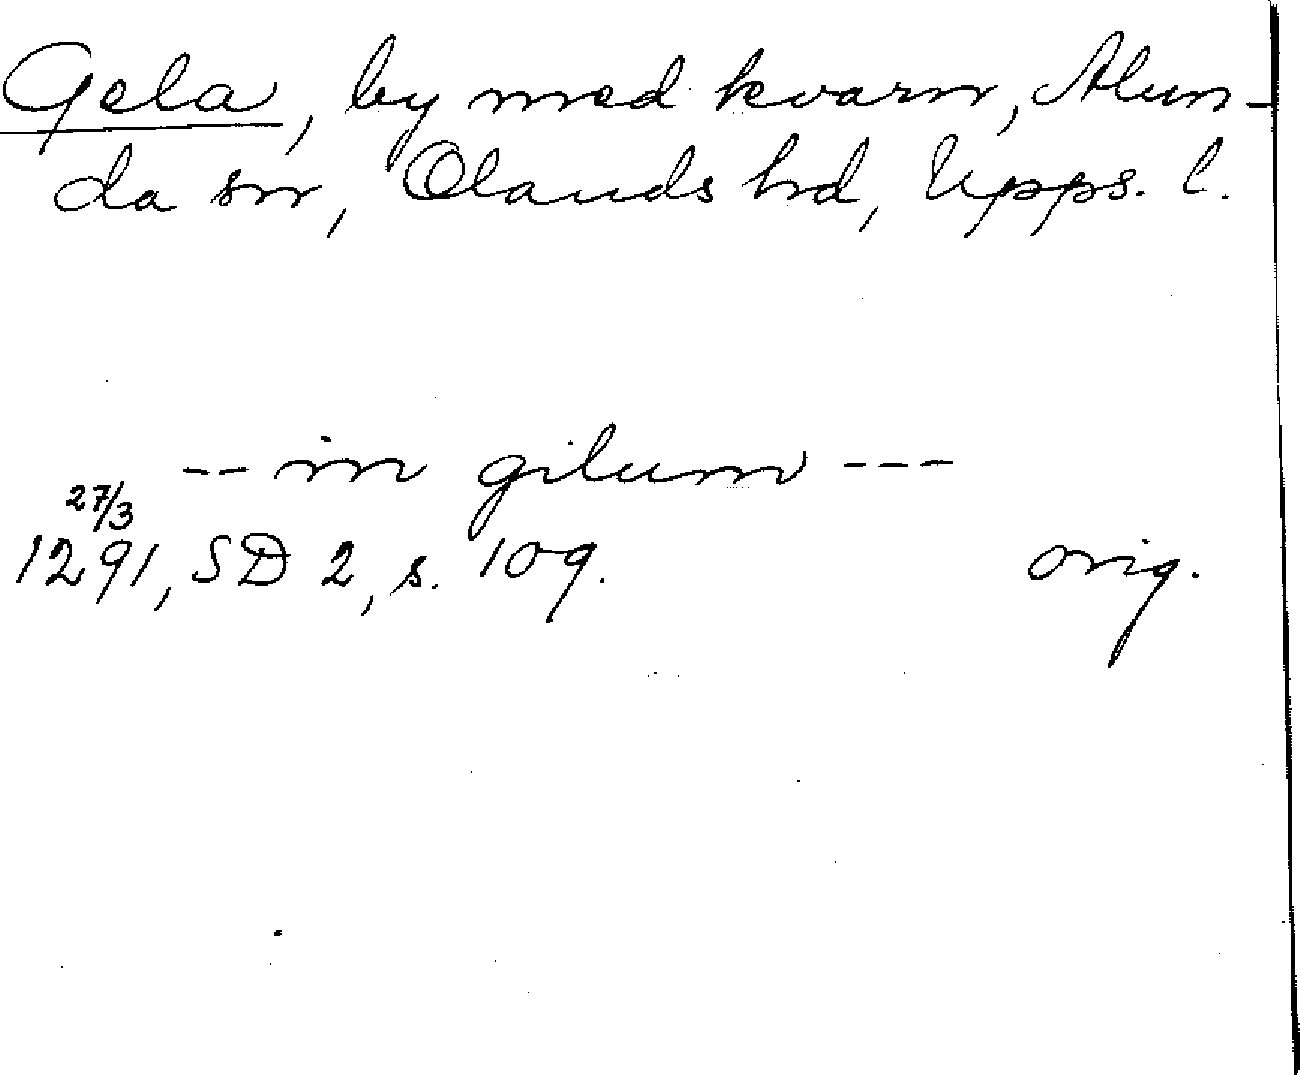 Gela, by med kvarn, Alun-
da sn, Olands hd, Upps. l.
-- in gilum ---
27/3
1291, SD 2, s. 109. orig.